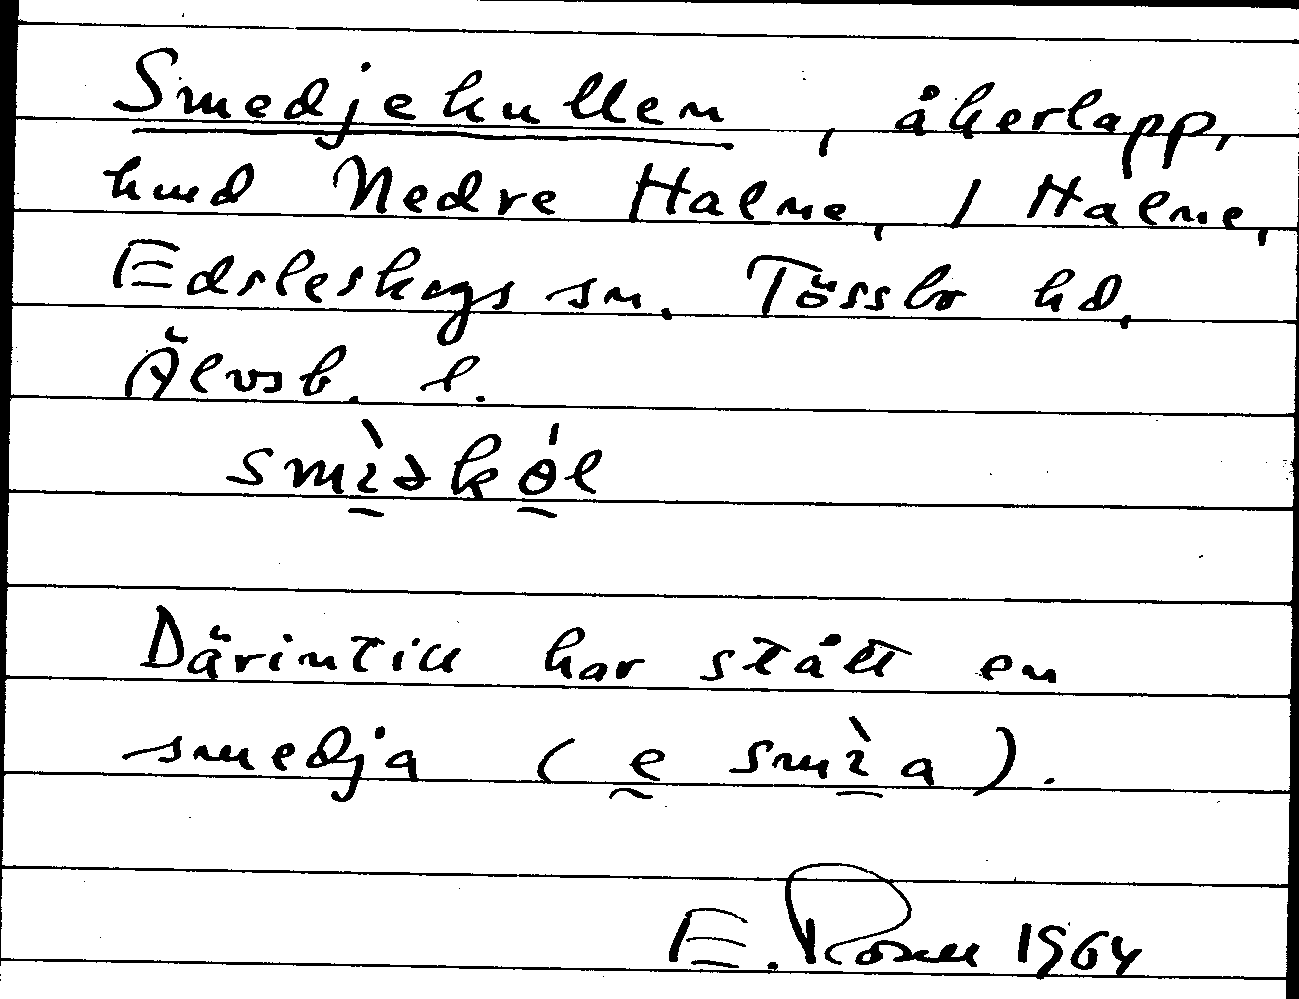 Smedjekullen, åkerlapp,
hmd Nedre Halne, / Halne,
Edsleskogs sn. Tössbo hd,
Älvsb. l.
smìəkǿl
Därintill har stått en
smedja (e smìa).
E. Rosell 1964